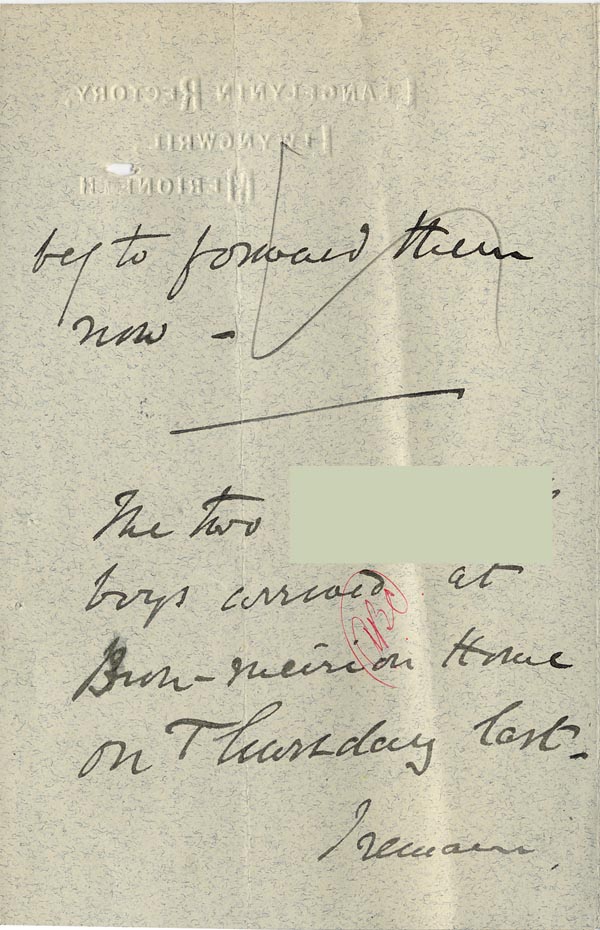 LLANGELYNIN RECTORY,
LLWYNGWRIL,
MERIONETH
beg to forward them
now -
The two
boys arrived at
Bron-meirion Home
on Thursday last.
I remain,